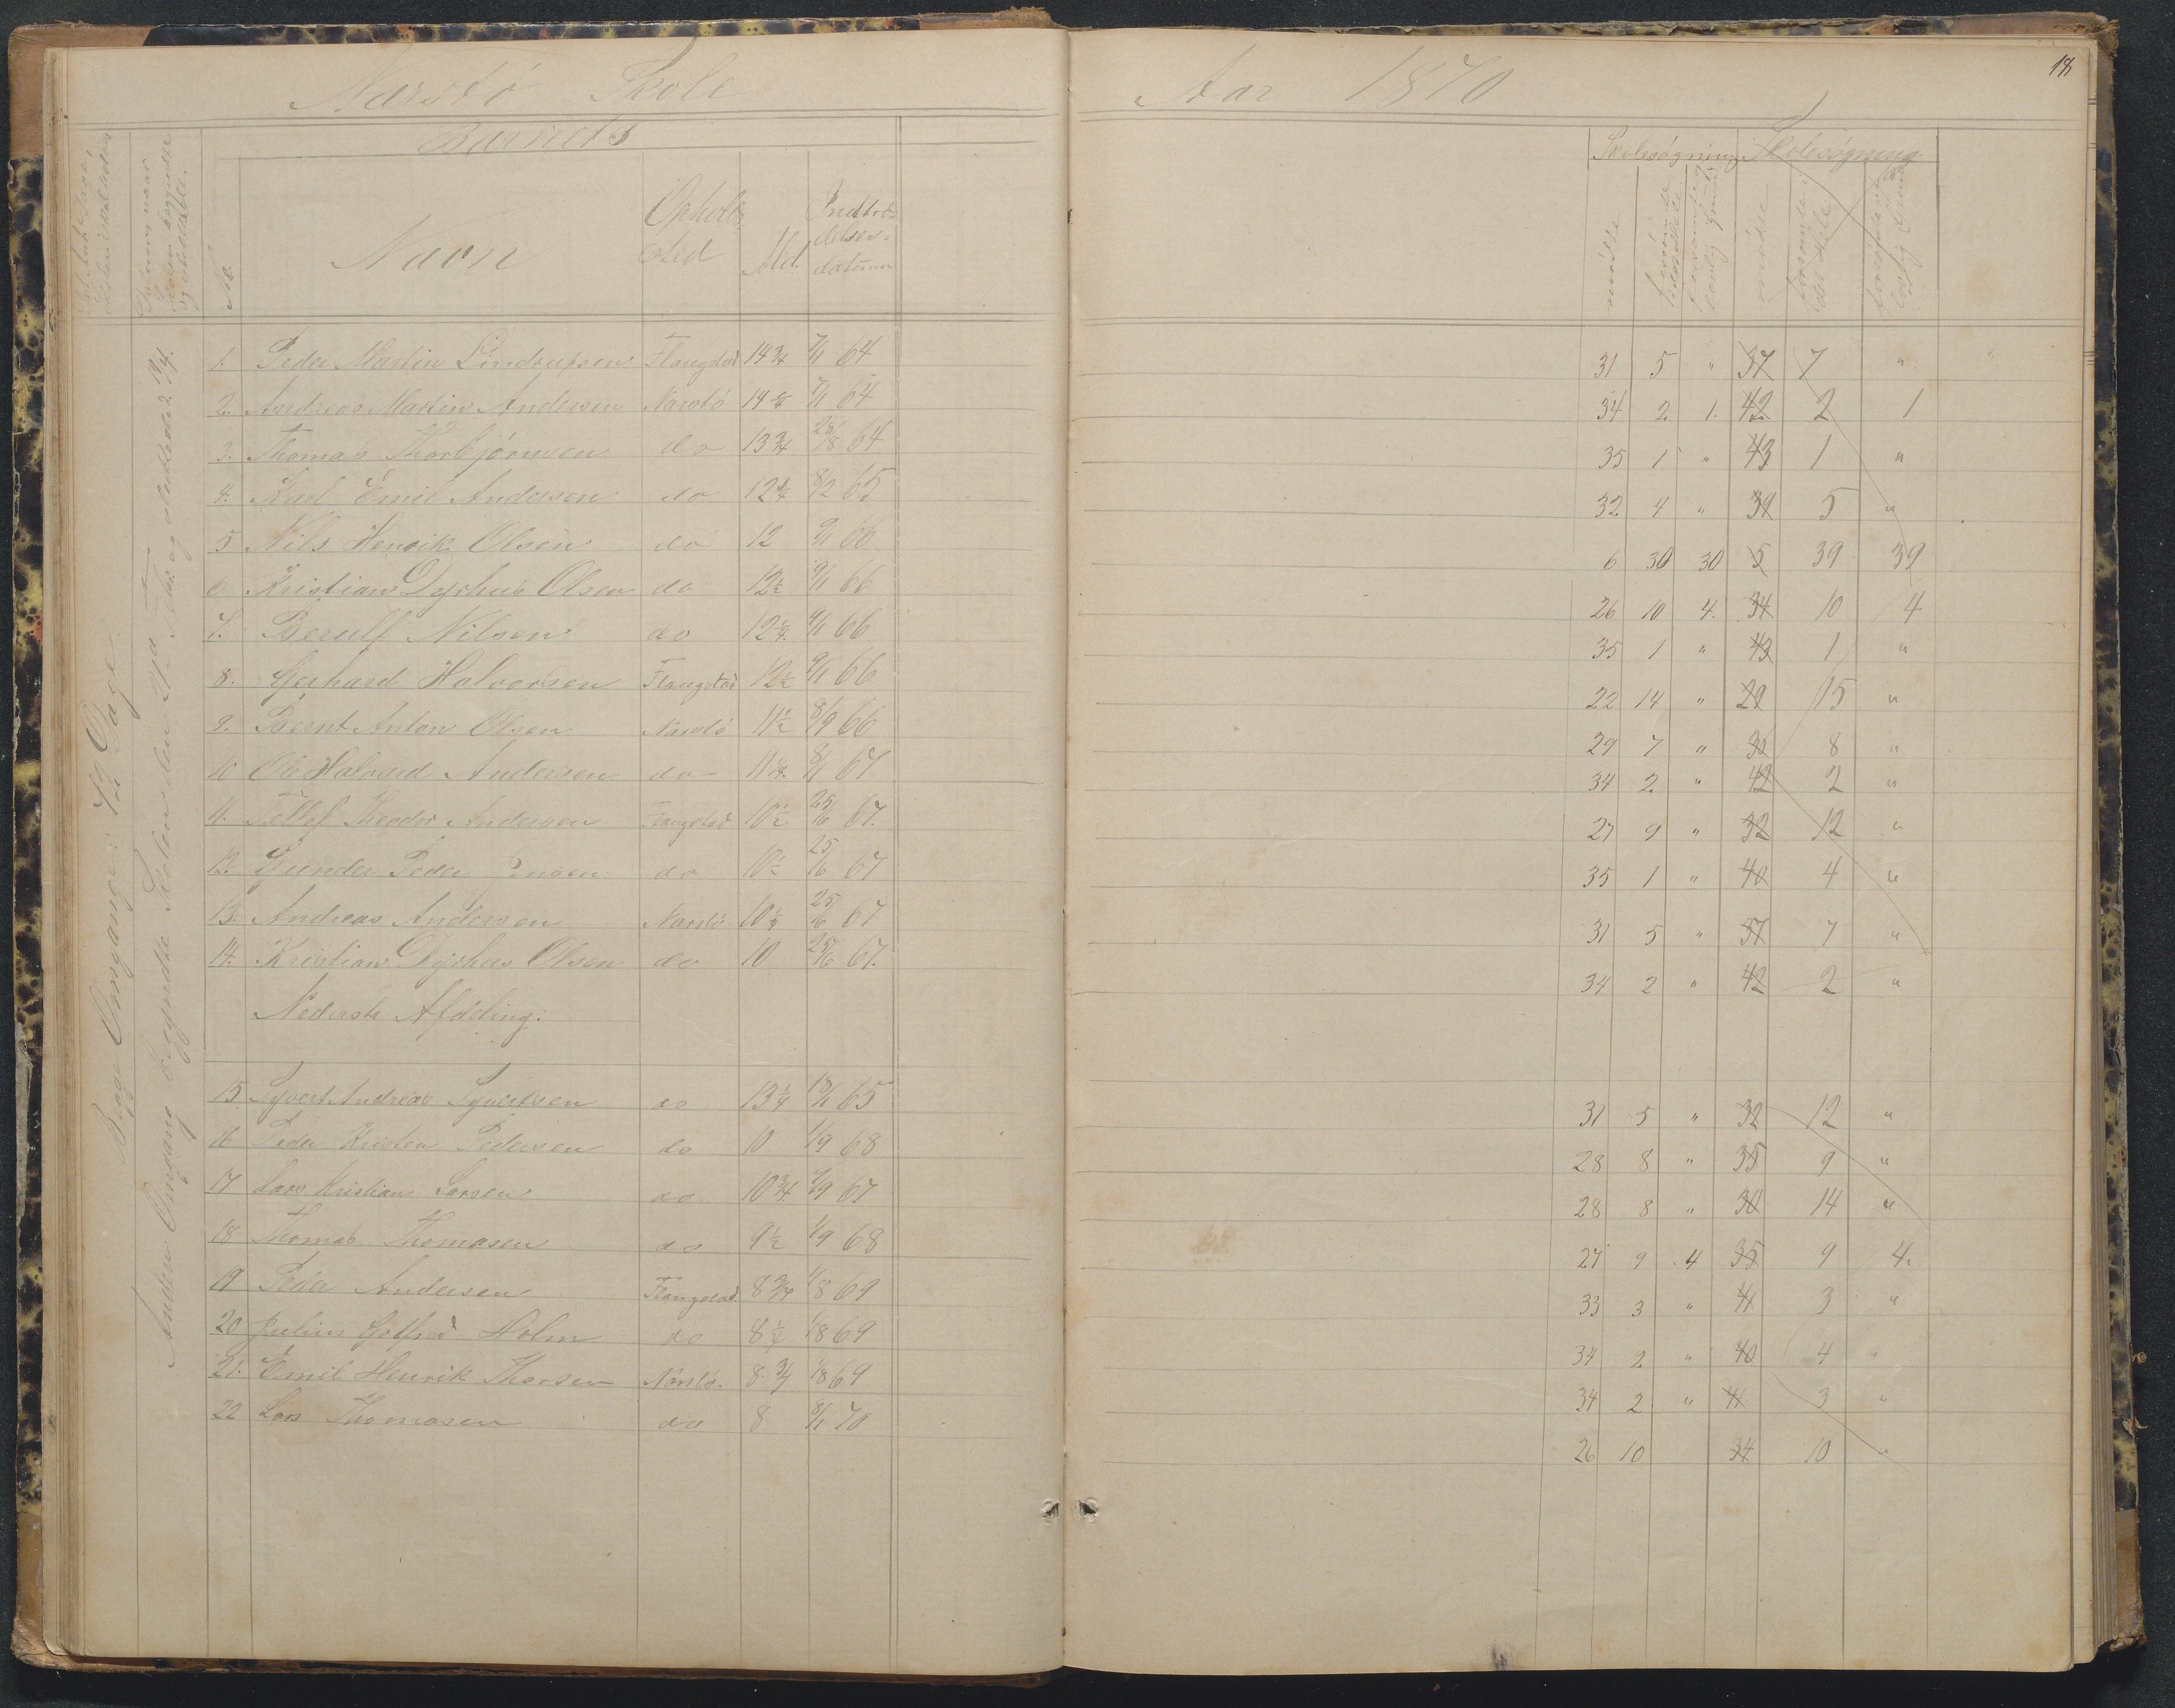 Narestö Skole
Aar 1870
18
Barnets
No.
Navn
Opholdssted
Ald.
Indtrædelsesdatum
Skolesøgning
Skolesøgning
mødte
forsømte det Hele
mødte
forsømte det Hele
Begge Omgange: Dage
Anden Omgang begyndte Skolen den og sluttede
1. Peder Martin Lindrupsen Flangstad 14 3/4 7/1 64 31 5 " 37 7 "
2. Andreas Martin Andersen Narestö 14 7/1 64 34 2 1. 42 2 1
3. Thomas Thorbjörnsen do 13 3/4 28/8 64 35 1 " 43 1 "
4. Karl Emil Andersen do 12 3/4 8/2 65 32 4 " 39 5 "
5 Nils Henrik Olsen do 12 9/1 66 6 30 30 5 39 39
6 Kristian Dyrhus Olsen do 12 1/2 9/1 66 26 10 4. 34 10 4
7. Berulf Nilsen do 12 1/4 9/1 66 35 1 " 43 1 "
8. Gerhard Halvorsen Flangstad 12 1/2 9/1 66 22 14 " 29 15 "
9. Bernt Anton Olsen Narestö 11 1/2 8/9 66 29 7 " 36 8 "
10 Ole Halvard Andersen do 11 1/4 8/1 67 34 2. " 42 2 "
11. Tellef Theodor Andersen Flangstad 10 1/2 25/6 67. 27 9 " 32 12 "
12. Gunder Peder Jensen do 10 1/2 25/6 67 35 1 " 40 4 "
13. Andreas Andersen Narestö 10 1/4 25/6 67 31 5 " 37 7 "
14. Kristian Dyrhus Olsen do 10 25/6 67. 34 2 " 42 2 "
Nederste Afdeling.
15 Syvert Andreas Syvertsen do 13 1/4 18/1 65 31 5 " 32 12 "
16 Peder Kristen Pedersen do 10 1/9 68 28 8 " 35 9 "
17 Lars Kristian Larsen do 10 3/4 2/9 67 28 8 " 30 14 "
18 Thomas Thomasen do 9 1/2 1/9 68 27 9 4 35 9 4.
19 Peder Andersen Flangstad. 8 3/4 1/8 69 33 3 " 41 3 "
20 Julius Gotfred Holm do 8 1/2 1/8 69 34 2 " 40 4 "
21. Emil Henrik Thorsen Narestö. 8 3/4 1/8 69 34 2 " 41 3 "
22 Lars Thomasen do 8 8/1 70 26 10 34 10 "